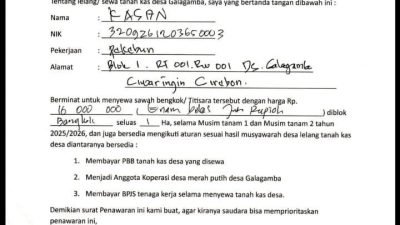 Tentang lelang/ sewa tanah kas desa Galagamba, saya yang bertanda tangan dibawah ini :
Nama : KASAN
NIK : 3209261203650003
Pekerjaan : Pekebun
Alamat : Blok 1. RT 001. RW 001 Ds. Galagamba
Ciwaringin Cirebon.
Berminat untuk menyewa sawah bengkok/ Titisara tersebut dengan harga Rp.
16 000 000 ( Enam belas Juta Rupiah ) diblok
seluas 1 Ha, selama Musim tanam 1 dan Musim tanam 2 tahun
2025/2026, dan juga bersedia mengikuti aturan sesuai hasil musyawarah desa lelang tanah kas
desa diantaranya sebesar :
1. Membayar PBB tanah kas desa yang disewa
2. Menjadi Anggota Koperasi desa merah putih desa Galagamba
3. Membayar BPJS tenaga kerja selama menyewa tanah kas desa.
Demikian surat Penawaran ini kami buat, agar kiranya saudara bisa memprioritaskan
penawaran ini,